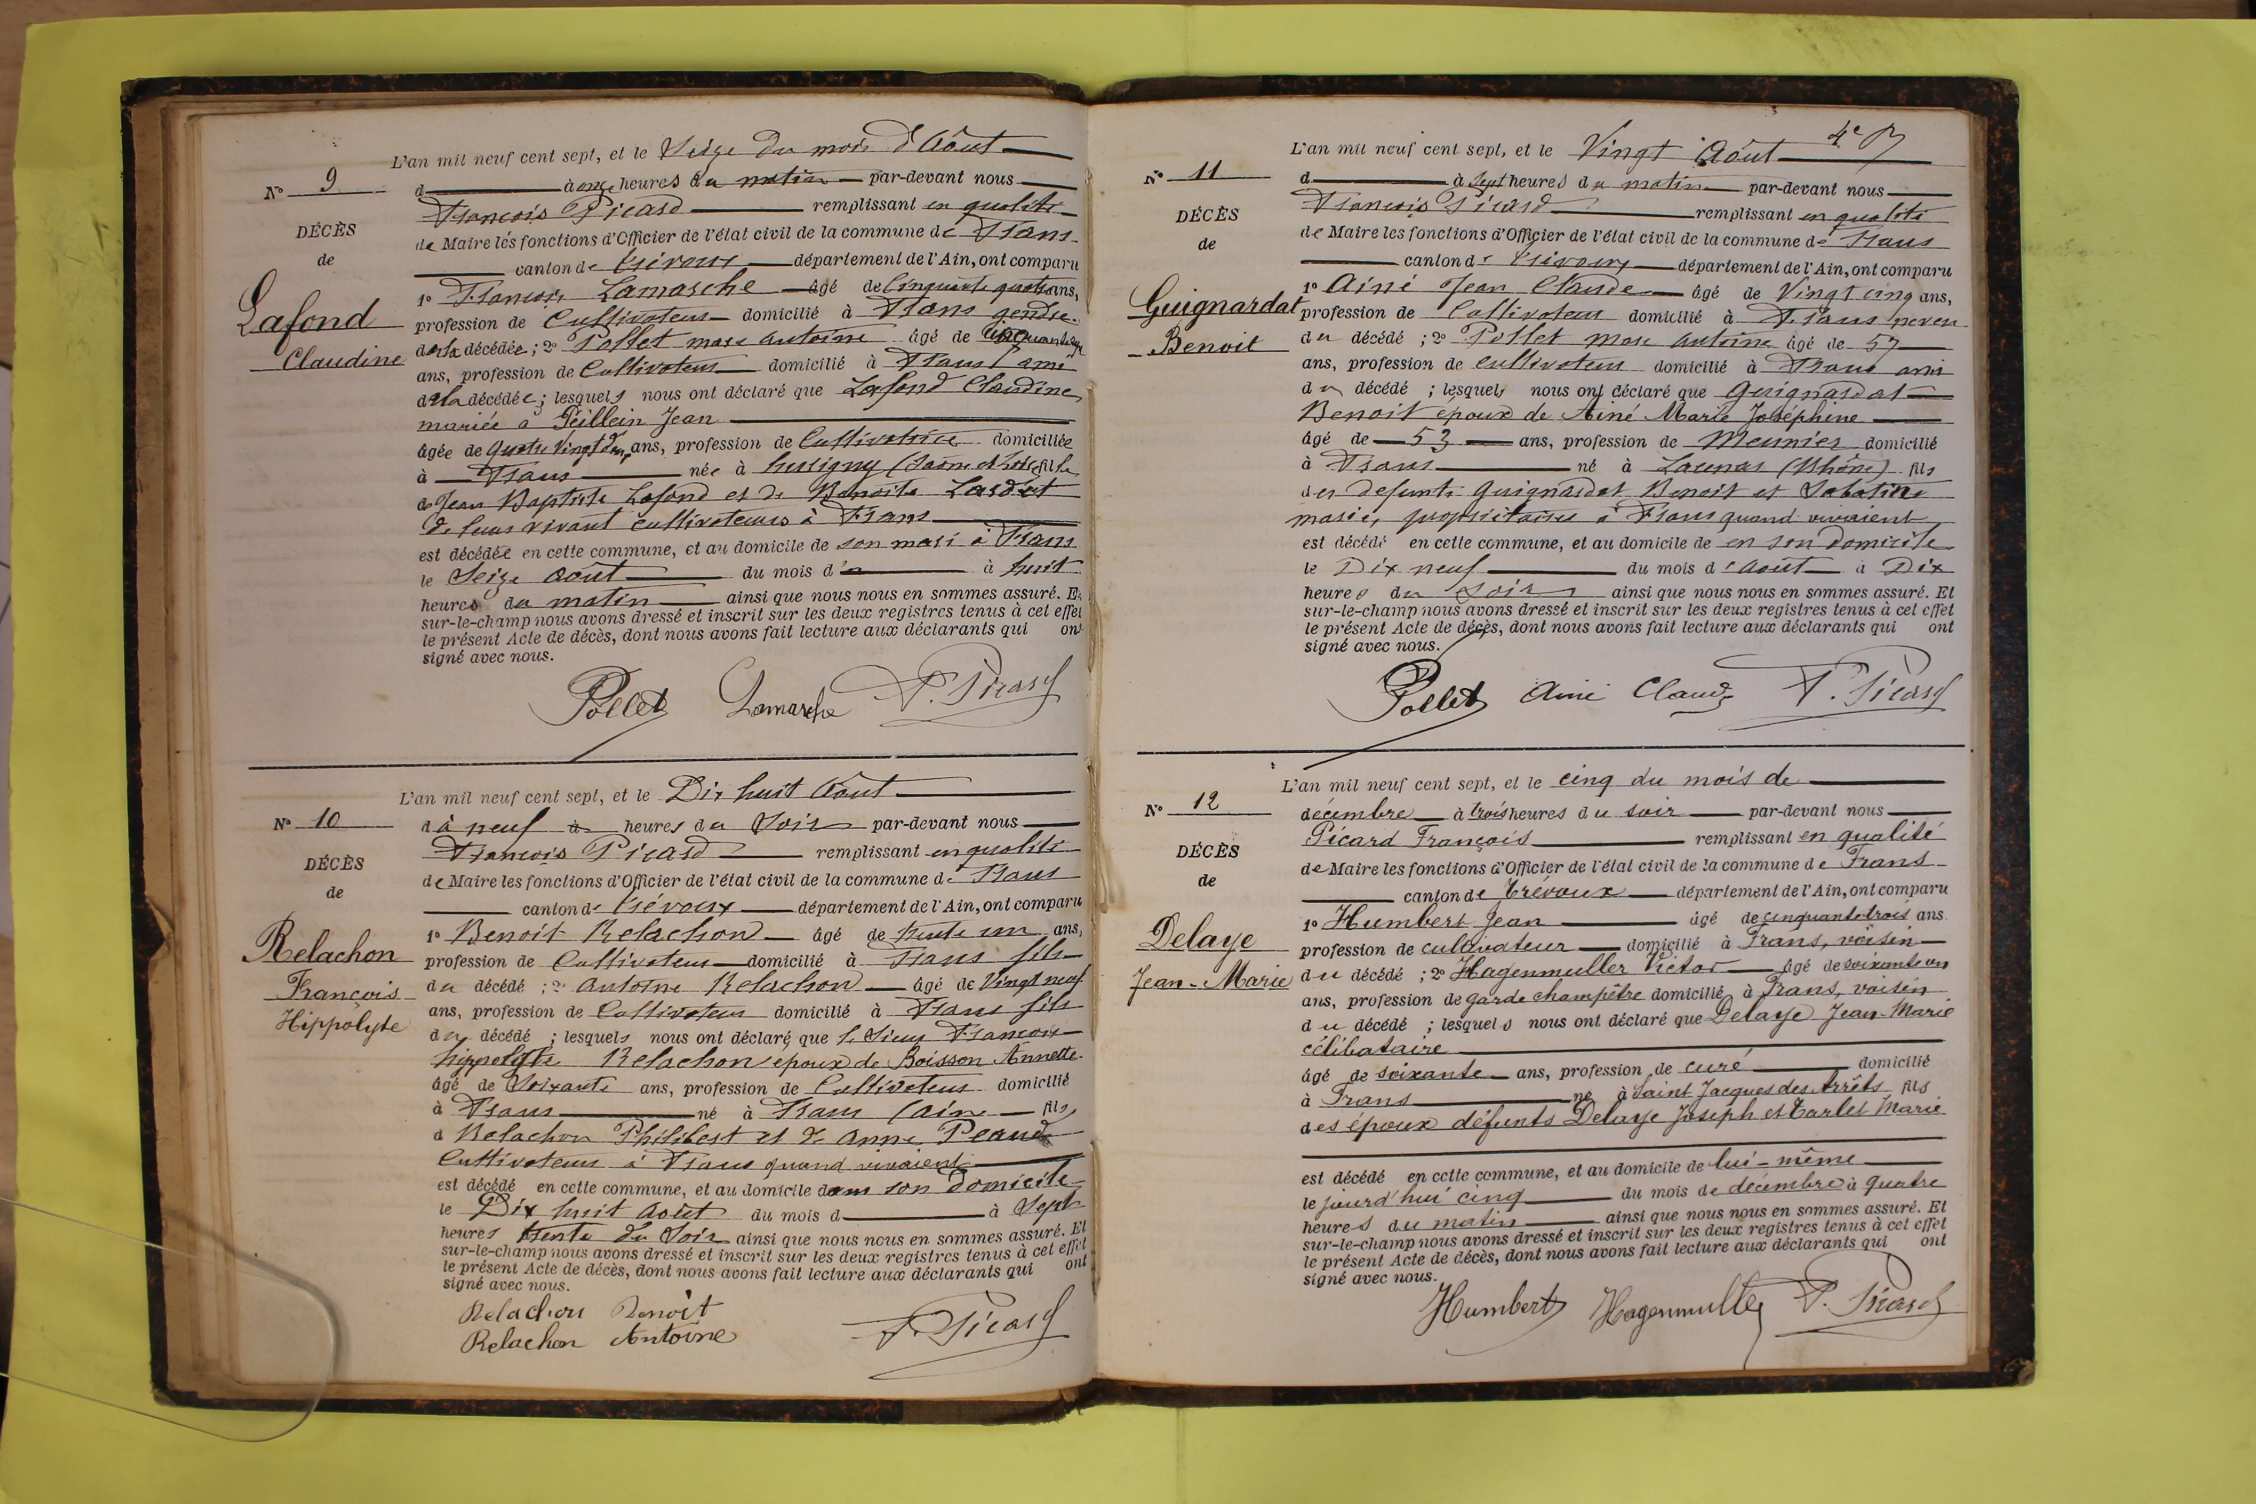 L'an mil neuf cent sept, et le Seize du mois d'Août
N° 9
d à onze heures du matin par-devant nous
François Picard remplissant en qualité
DÉCÈS
de Maire les fonctions d'Officier de l'état civil de la commune de Frans
de
canton de Trévoux département de l'Ain, ont comparu
Lafond
Claudine
1° François Lamarche âgé de Cinquante quatre ans,
profession de Cultivateur domicilié à Frans gendre
de la décédée ; 2° Pollet marc antoine âgé de
ans, profession de Cultivateur domicilié à Frans ami
de la décédée ; lesquels nous ont déclaré que Lafond Claudine
mariée à Peillein Jean
âgée de Quatre Vingt deux ans, profession de Cultivatrice domiciliée
à Frans née à Lussigny (Saône et Loire) fille
de Jean Baptiste Lafond et de Benoite Lardet
de leur vivant cultivateurs à Frans
est décédée en cette commune, et au domicile de son mari à Frans
le Seize Août du mois d à huit
heures du matin ainsi que nous nous en sommes assuré. Et
sur-le-champ nous avons dressé et inscrit sur les deux registres tenus à cet effet
le présent Acte de décès, dont nous avons fait lecture aux déclarants qui ont
signé avec nous.
Pollet Lamarche F. Picard
L'an mil neuf cent sept, et le Dix huit Août
N° 10
d à neuf à heures du Soir par-devant nous
François Picard remplissant en qualité
DÉCÈS
de Maire les fonctions d'Officier de l'état civil de la commune de Frans
de
canton de Trévoux département de l'Ain, ont comparu
Relachon
François
Hippolyte
1° Benoit Relachon âgé de trente un ans,
profession de Cultivateur domicilié à Frans fils
du décédé ; 2° Antoine Relachon âgé de Vingt neuf
ans, profession de Cultivateur domicilié à Frans fils
du décédé ; lesquels nous ont déclaré que le Sieur François
hippolyte Relachon époux de Boisson Annette
âgé de Soixante ans, profession de Cultivateur domicilié
à Frans né à Frans (ain fils
d Relachon Philibert et de Anne Peaud
Cultivateurs à Frans quand vivaient
est décédé en cette commune, et au domicile dans son domicile
le Dix huit Août du mois d à Sept
heures trente du Soir ainsi que nous nous en sommes assuré. Et
sur-le-champ nous avons dressé et inscrit sur les deux registres tenus à cet effet
le présent Acte de décès, dont nous avons fait lecture aux déclarants qui ont
signé avec nous.
Relachon Benoit
Relachon Antoine F. Picard
4e
L'an mil neuf cent sept, et le Vingt Août
N° 11
d à sept heures du matin par-devant nous
François Picard remplissant en qualité
DÉCÈS
de Maire les fonctions d'Officier de l'état civil de la commune de Frans
de
canton de Trévoux département de l'Ain, ont comparu
Guignardat
Benoit
1° Ainé Jean Claude âgé de Vingt cinq ans,
profession de Cultivateur domicilié à Frans neveu
du décédé ; 2° Pollet Marc Antoine âgé de 57
ans, profession de cultivateur domicilié à Frans ami
du décédé ; lesquels nous ont déclaré que Guignardat
Benoit époux de Ainé Marie Joséphine
âgé de 53 ans, profession de Meunier domicilié
à Frans né à (Rhône) fils
des defunts Guignardat Benoit et Sabatine
marie, propriétaires à Frans quand vivaient
est décédé en cette commune, et au domicile de en son domicile
le Dix neuf du mois d'août à Dix
heures du Soir ainsi que nous nous en sommes assuré. Et
sur-le-champ nous avons dressé et inscrit sur les deux registres tenus à cet effet
le présent Acte de décès, dont nous avons fait lecture aux déclarants qui ont
signé avec nous.
Pollet Ainé Claude F. Picard
L'an mil neuf cent sept, et le cinq du mois de
N° 12
décembre à trois heures du soir par-devant nous
Picard François remplissant en qualité
DÉCÈS
de Maire les fonctions d'Officier de l'état civil de la commune de Frans
de
canton de Trévoux département de l'Ain, ont comparu
Delaye
Jean-Marie
1° Humbert Jean âgé de cinquante trois ans
profession de cultivateur domicilié à Frans, voisin
du décédé ; 2° Hagenmuller Victor âgé de soixante un
ans, profession de garde champêtre domicilié à Frans, voisin
du décédé ; lesquels nous ont déclaré que Delaye Jean-Marie
célibataire
âgé de soixante ans, profession de curé domicilié
à Frans né à Saint Jacques des Arrêts fils
des époux défunts Delaye Joseph et Carlet Marie
est décédé en cette commune, et au domicile de lui-même
le jourd'hui cinq du mois de décembre à quatre
heures du matin ainsi que nous nous en sommes assuré. Et
sur-le-champ nous avons dressé et inscrit sur les deux registres tenus à cet effet
le présent Acte de décès, dont nous avons fait lecture aux déclarants qui ont
signé avec nous.
Humbert Hagenmuller F. Picard